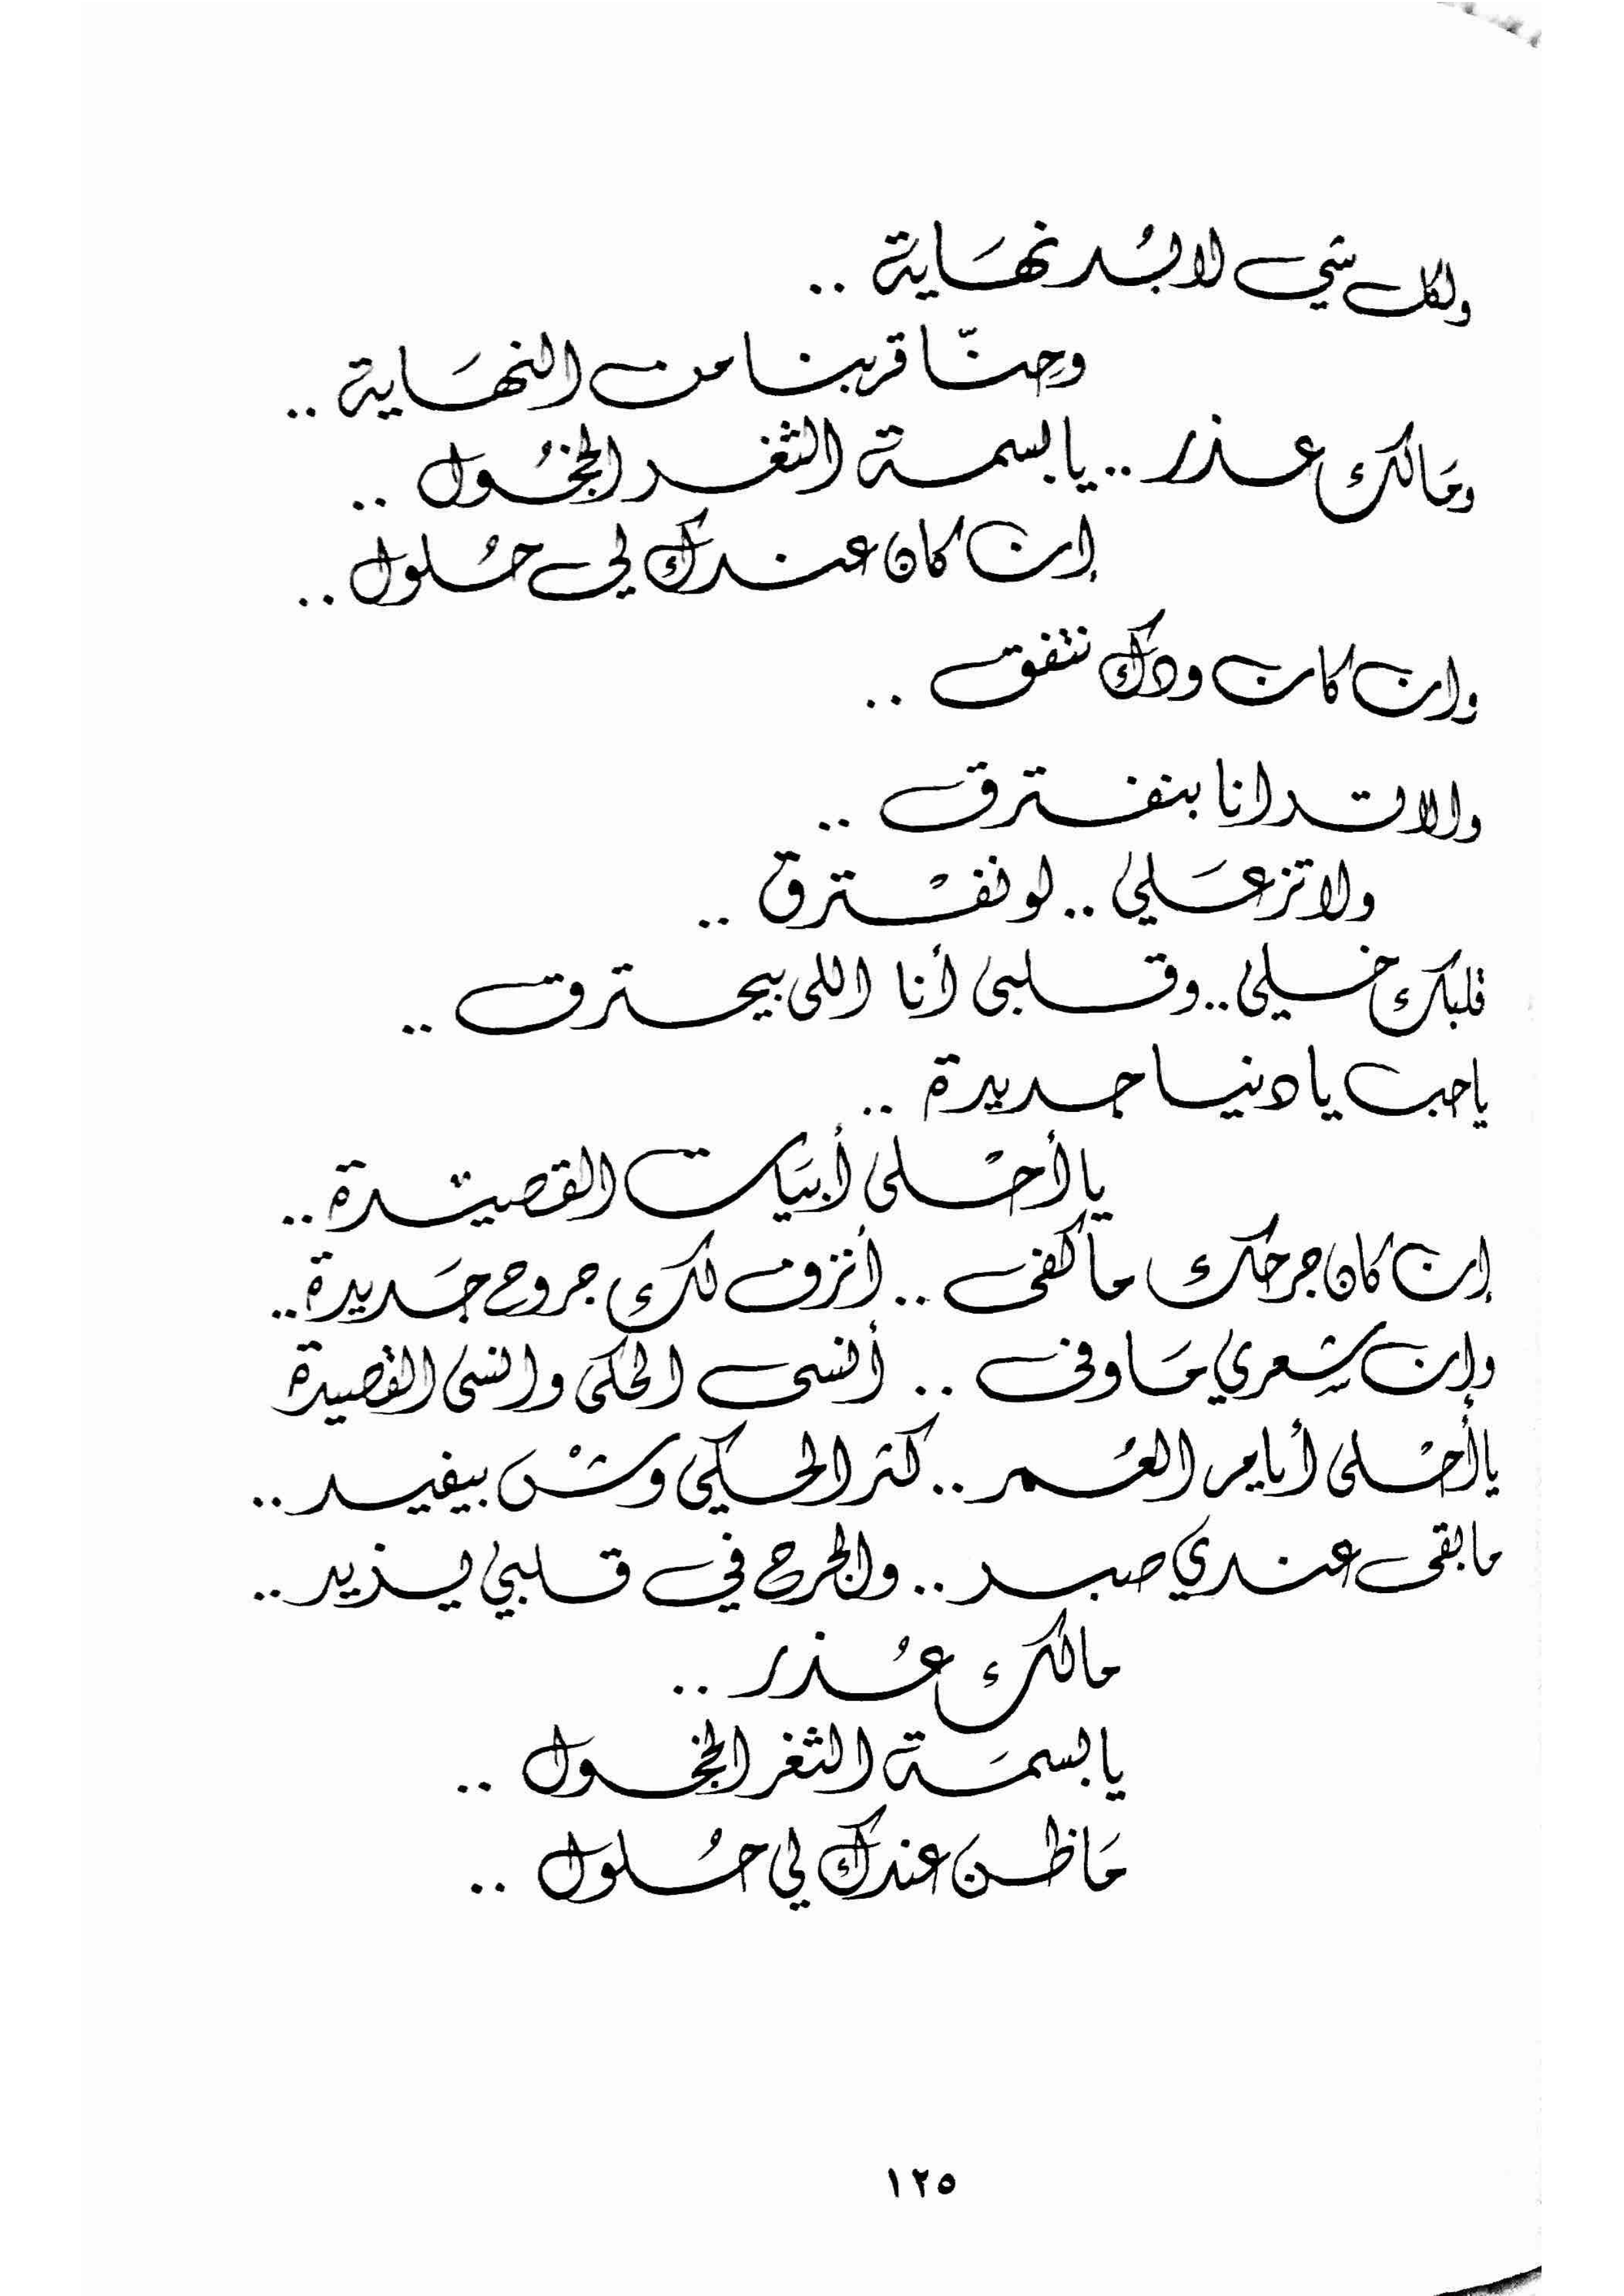 ولكل شي لابُد نهَاية ..
وحِنّا قربنا من النهَاية ..
ومَالك عذر .. يا بسمة الثغر الخجُول ..
إن كان عندك لي حُلول ..
وإن كان ودك نتفق ..
والا ترانا بنفترق ..
ولا تزعَلي .. لو نفْترق ..
قلبك خلي .. وقلبي أنا اللي بيحترق ..
يا حب يا دنيا جديدة ..
يا أحْلى أبيَات القصيدة ..
إن كان جرحك ما كفى .. أنزف لك جروح جَديدة ..
وإن شِعري مَا وفى .. أنسى الحكَي وانسى القصيدة
يا أحْلى أيام العُمر .. كثر الحكي وشْ بيفيد ..
ما بقى عندي صبر .. والجرح في قلبي يزيد ..
مالك عُذر ..
يا بسمَة الثغر الخجول ..
مَاظن عندك لي حُلول ..
١٢٥